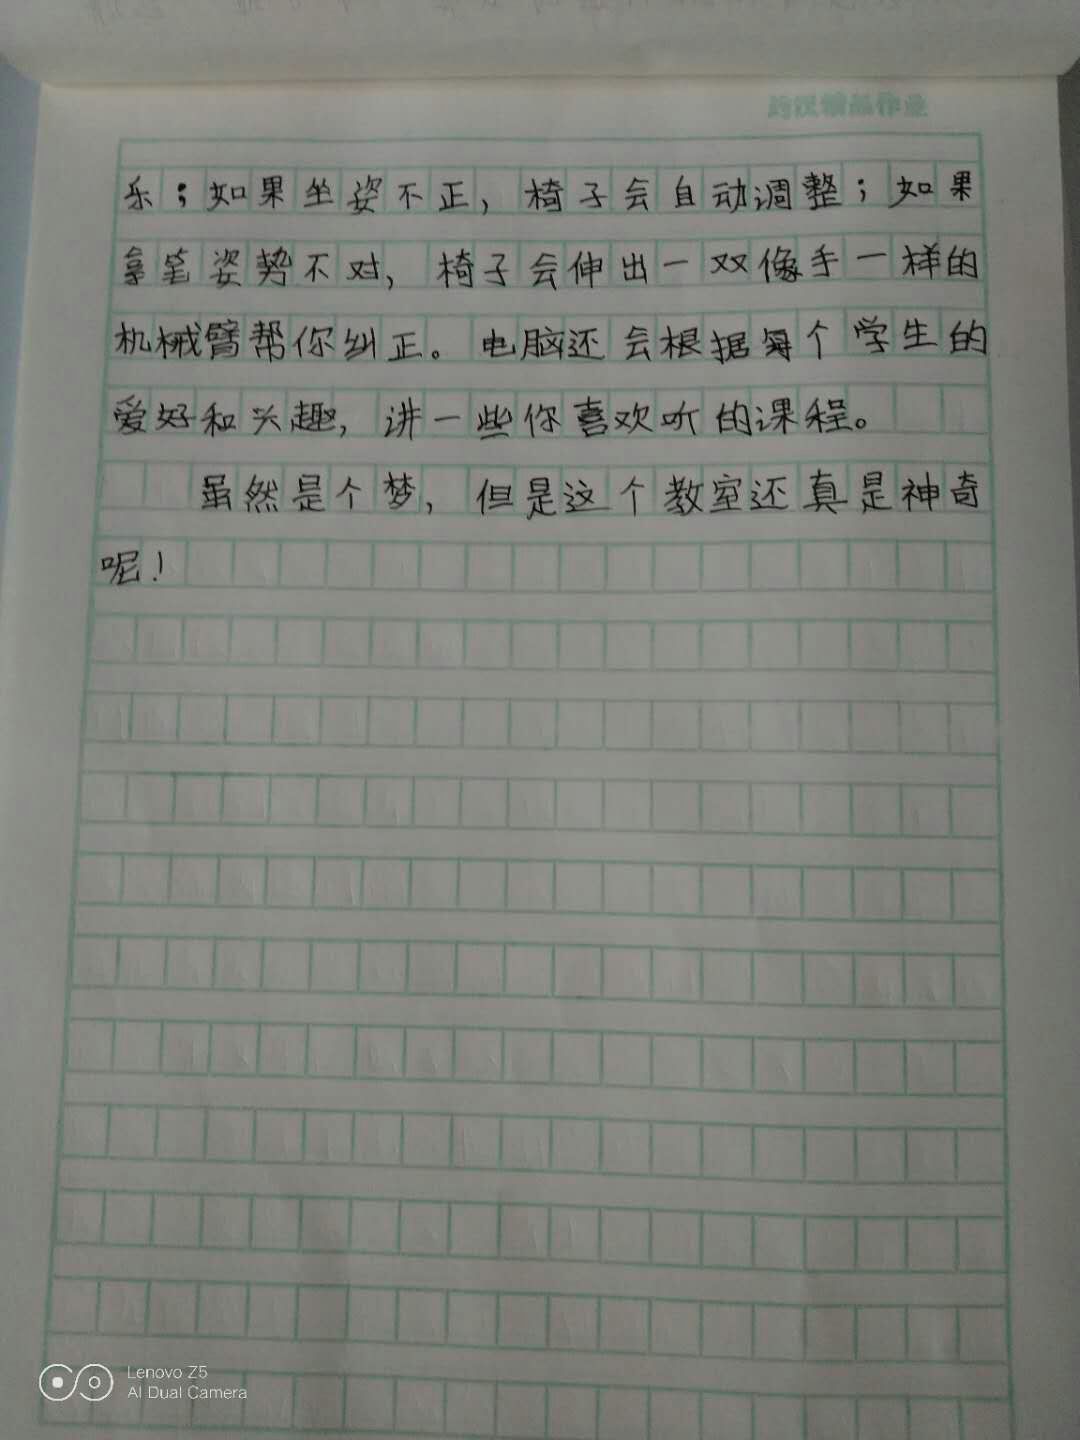 乐；如果坐姿不正，椅子会自动调整；如果
拿笔姿势不对，椅子会伸出一双像手一样的
机械臂帮你纠正。电脑还会根据每个学生的
爱好和兴趣，讲一些你喜欢听的课程。
虽然是个梦，但是这个教室还真是神奇
呢！
Lenovo Z5
AI Dual Camera